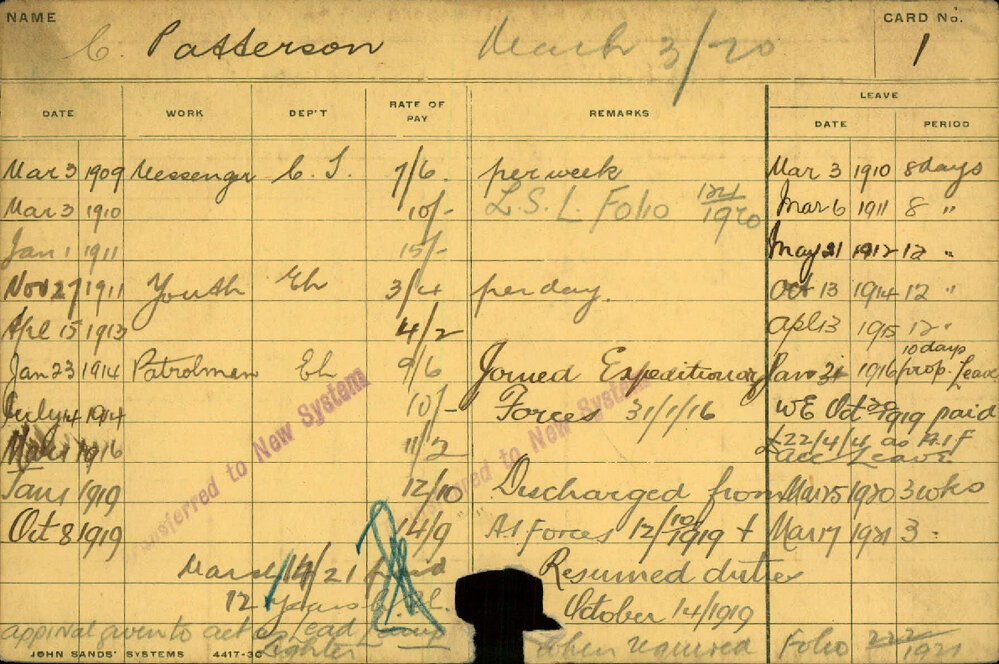 NAME CARD No.
C. Patterson March 3/20 1
LEAVE
DATE WORK DEP'T RATE OF PAY REMARKS DATE PERIOD
Mar 3 1909 Messenger C. S. 7/6 per week Mar 3 1910 8 days
Mar 3 1910 10/- L. S. L. Folio 124/1920 Mar 6 1911 8 "
Jan 1 1911 15/- May 21 1912 12 "
Nov 27 1911 Youth Eh 3/4 per day. Oct 13 1914 12 "
Apl 15 1913 4/2 Apl 13 1915 12 "
10 days
Jan 23 1914 Patrolman Eh 9/6 Joined Expeditionary Jan 31 1916 prop. Leave
July 4 1914 10/- Forces 31/1/16 WE Oct 1919 paid
1916 11/2 £22/4/4 as A.I.F
Acc Leave
Jan 1 1919 12/10 Discharged from Mar 25 1920 3 wks
Oct 8 1919 14/9 A.I Forces 12/10/1919 + Mar 17 1921 3 "
March 14/21 paid Resumed duties
12 years October 14/1919
approval given to act as Lead Lamp
Lighter when required Folio 222/1921
Transferred to New System
Transferred to New System
JOHN SANDS' SYSTEMS 4417-30